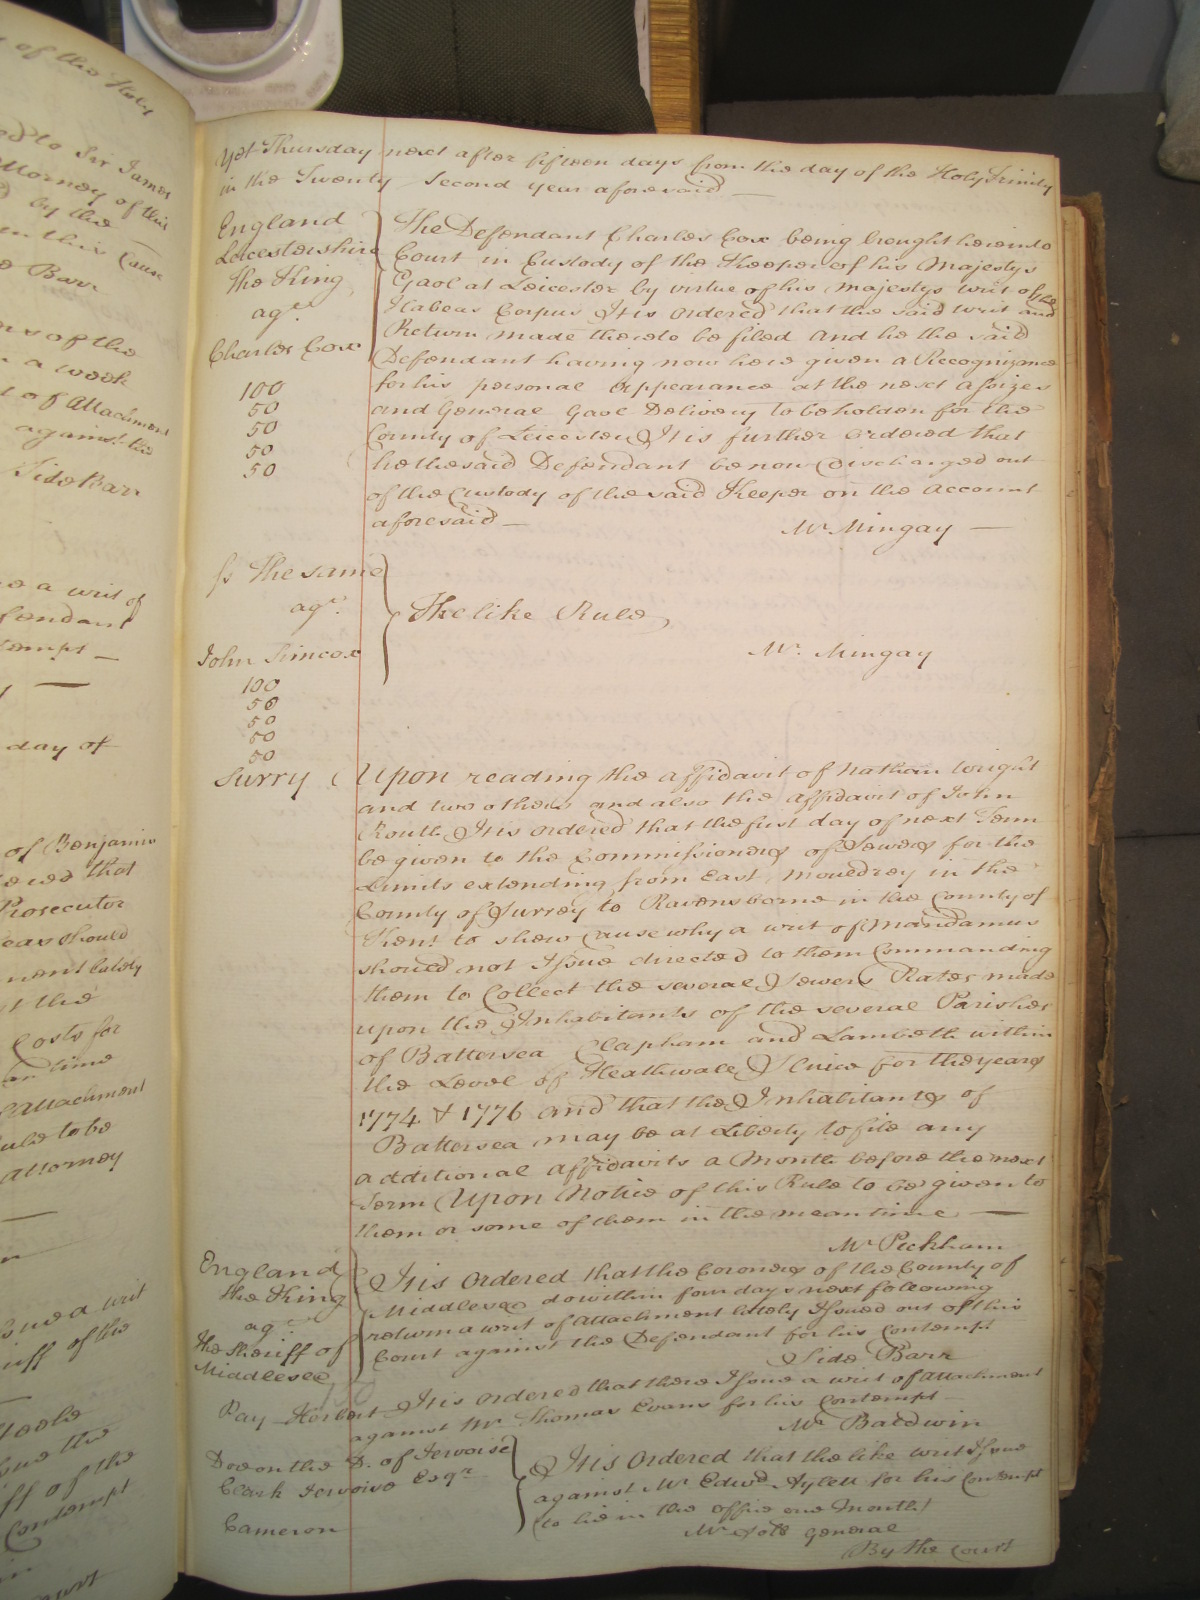 Yet Thursday next after fifteen days from the day of the Holy Trinity
in the Twenty Second year aforesaid —
England
Leicestershire
The King
agt.
Charles Cox
100
50
50
50
50
The Defendant Charles Cox being brought here into
Court in Custody of the Keeper of his Majestys
Gaol at Leicester by virtue of his Majestys writ of
Habeas Corpus It is ordered that the said writ and
Return made thereto be filed and he the said
Defendant having now here given a Recognizance
for his personal Appearance at the next Assizes
and General Gaol Delivery to be holden for the
County of Leicester It is further ordered that
he the said Defendant be now Discharged out
of the Custody of the said Keeper on the Account
aforesaid —
Mr. Mingay —
Ss The same
agt.
John Simcox
100
50
50
50
50
The like Rule
Mr. Mingay
Surry
Upon reading the affidavit of Nathan Wright
and two others and also the affidavit of John
Routh It is ordered that the first day of next Term
be given to the Commissioners of Sewers for the
Limits extending from East Mouldsey in the
County of Surrey to Ravensborne in the County of
Kent to shew Cause why a writ of Mandamus
should not Issue directed to them Commanding
them to Collect the several Sewers Rates made
upon the Inhabitants of the several Parishes
of Battersea Clapham and Lambeth within
the Level of Heathwall Sluice for the years
1774 & 1776 and that the Inhabitants of
Battersea may be at Liberty to file any
additional affidavits a Month before the next
Term Upon Notice of this Rule to be given to
them or some of them in the mean time —
Mr. Peckham
England
The King
agt.
The Sheriff of
Middlesex
It is Ordered that the Coroners of the County of
Middlesex do within four days next following
return a writ of Attachment lately Issued out of this
Court against the Defendant for his Contempt
Side Barr
Ray Herbert It is ordered that there Issue a writ of attachment
against Mr. Thomas Evans for his Contempt —
Mr. Baldwin
Doe on the D. of Jervoise
Clark Jervoise Esqr.
Cameron
It is Ordered that the like writ Issue
against Mr. Edwd. Aylett for his Contempt
to lie in the office one Month
Mr. Solr. General
By the Court
of the Holy
to Sir James
Attorney of this
by the
in this Cause
Barr
of the
a week
of Attachment
against the
Side Barr
a writ of
—
day of
of Benjamin
that
Prosecutor
should
lately
the
Costs for
time
Attachment
to be
Attorney
Issue a writ
of the
the
of the
Contempt
Court